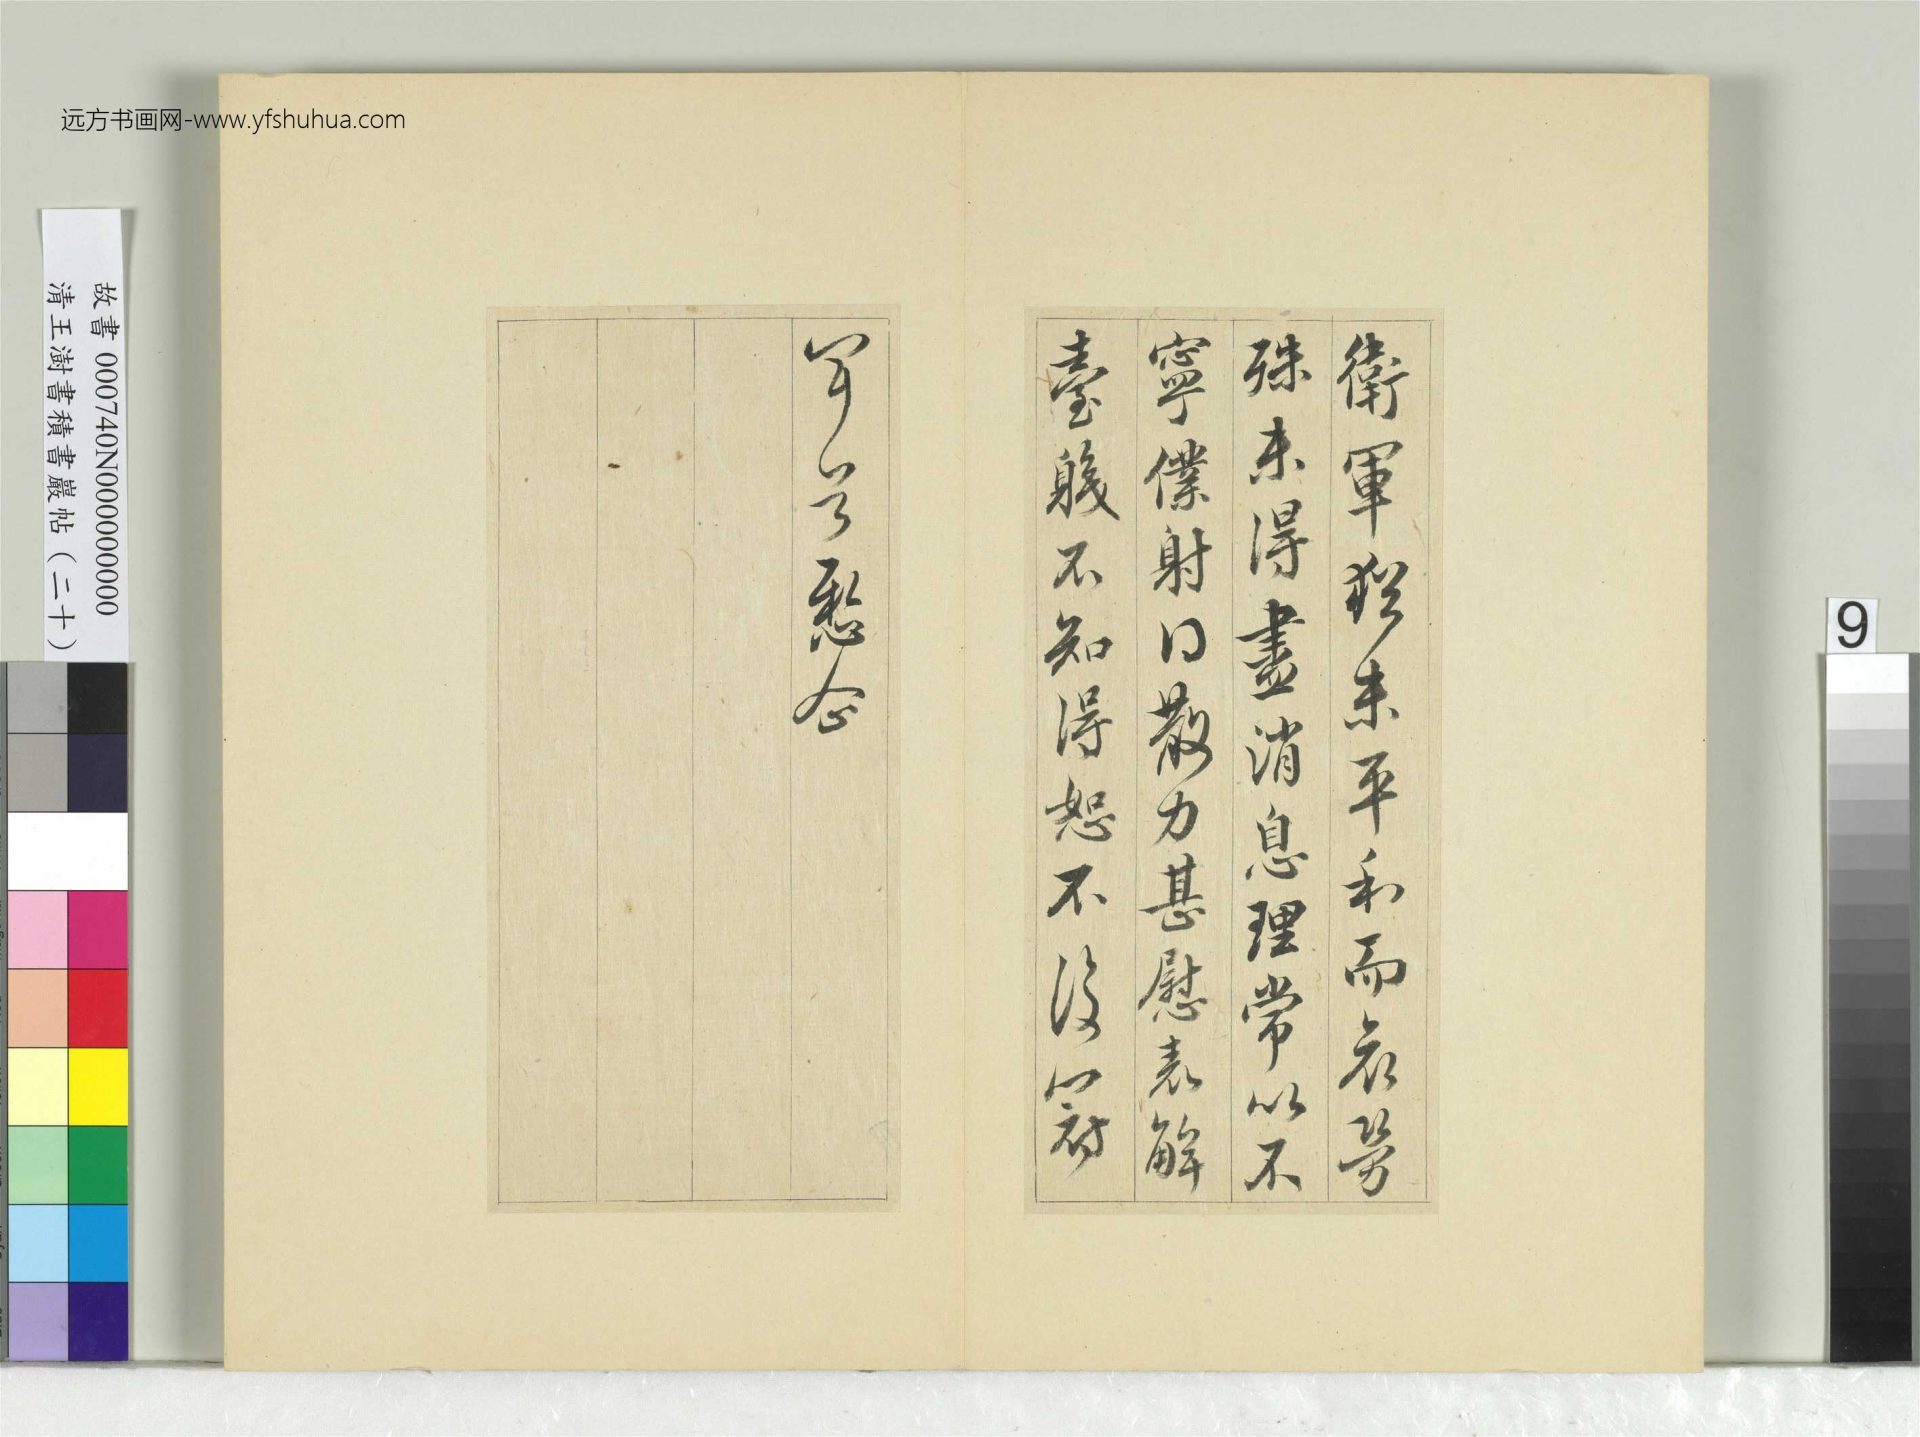 远方书画网-www.yfshuhua.com
故書 000740N000000000
清王澍書積書巖帖(二十)
9
衛軍猶未平和而哀勞
殊未得盡消息理常以不
寧僕射日散力甚慰表解
臺賤不知得恕不後
愁念